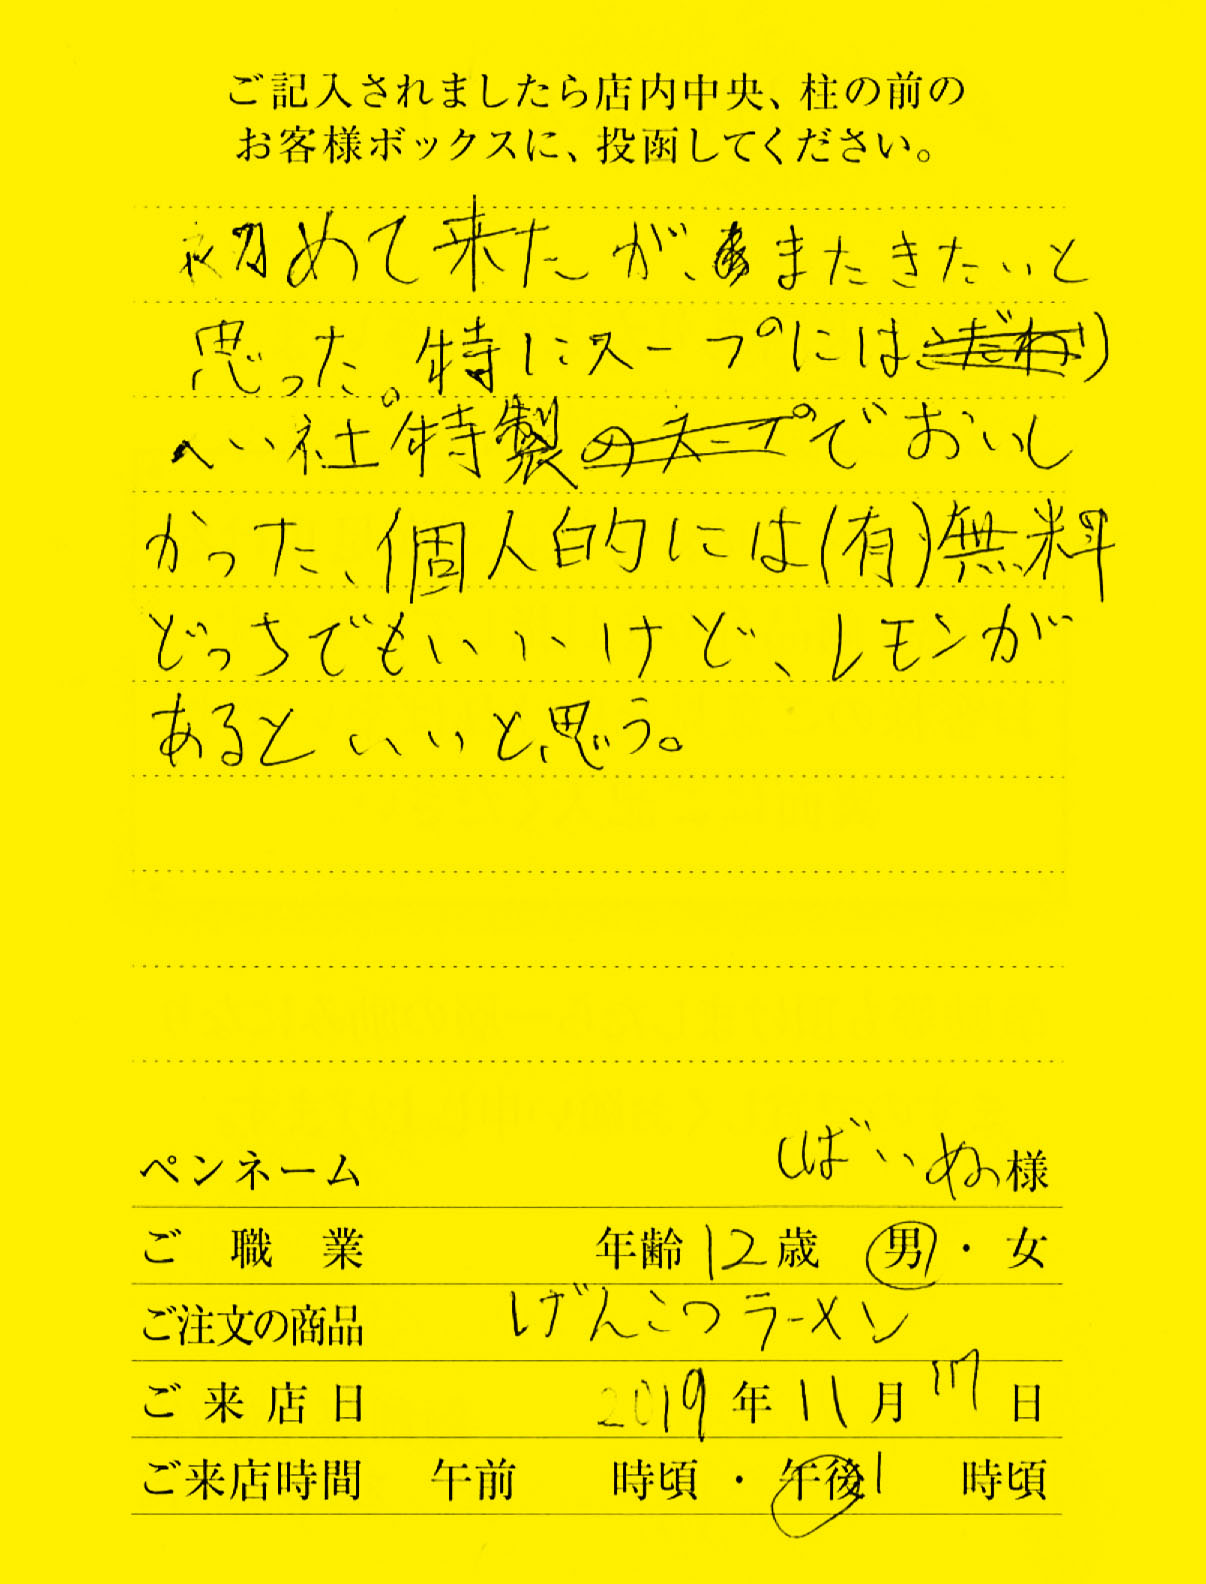 ご記入されましたら店内中央、柱の前の
お客様ボックスに、投函してください。
初めて来たが、またきたいと
思った。特にスープには
へい社特製でおいし
かった、個人的には(有)無料
どっちでもいいけど、レモンが
あるといいと思う。
ペンネーム しばいぬ様
ご職業 年齢12歳 男・女
ご注文の商品 げんこつラーメン
ご来店日 2019年11月17日
ご来店時間 午前 時頃・午後1時頃